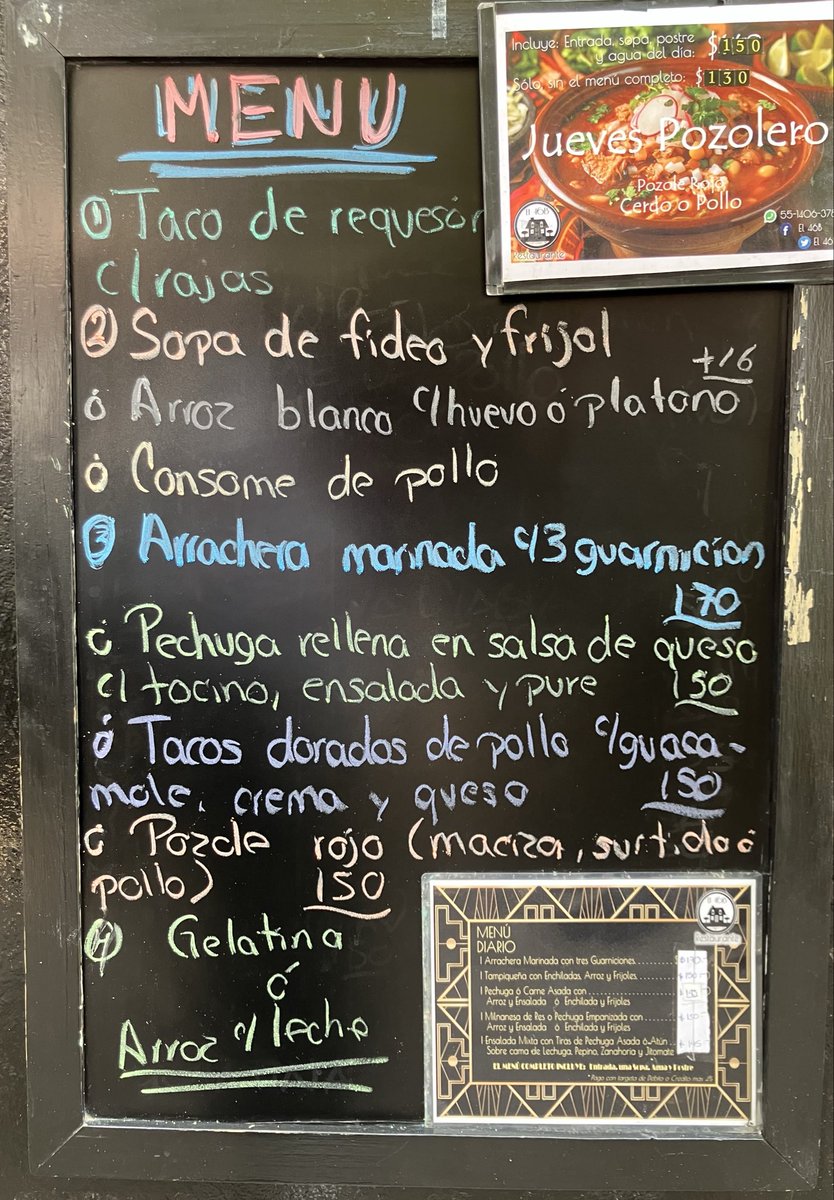 MENU
① Taco de requesón
c/rajas
② Sopa de fideo y frijol
+16
ó Arroz blanco c/huevo ó platano
ó Consome de pollo
③ Arrachera marinada c/3 guarnicion
170
ó Pechuga rellena en salsa de queso
c/ tocino, ensalada y pure 150
ó Tacos dorados de pollo c/guaca-
mole, crema y queso 150
ó Pozole rojo (maciza, surtida ó
pollo) 150
④ Gelatina
ó
Arroz c/leche
Incluye: Entrada, sopa, postre
y agua del día: $150
Sólo, sin el menú completo: $130
Jueves Pozolero
Pozole Rojo
Cerdo o Pollo
EL 46B
Restaurante
55-1406-37
EL 46B
EL 46
EL 46B
Restaurante
MENÚ
DIARIO
1 Arrachera Marinada con tres Guarniciones
1 Tampiqueña con Enchiladas, Arroz y Frijoles
1 Pechuga ó Carne Asada con
Arroz y Ensalada ó Enchilada y Frijoles
1 Milnanesa de Res o Pechuga Empanizada con
Arroz y Ensalada ó Enchilada y Frijoles
1 Ensalada Mixta con Tiras de Pechuga Asada ó Atún
Sobre cama de Lechuga, Pepino, Zanahoria y Jitomate
EL MENÚ COMPLETO INCLUYE: Entrada, una Sopa, Agua y Postre
*Pago con targeta de Debito o Credito mas 2%